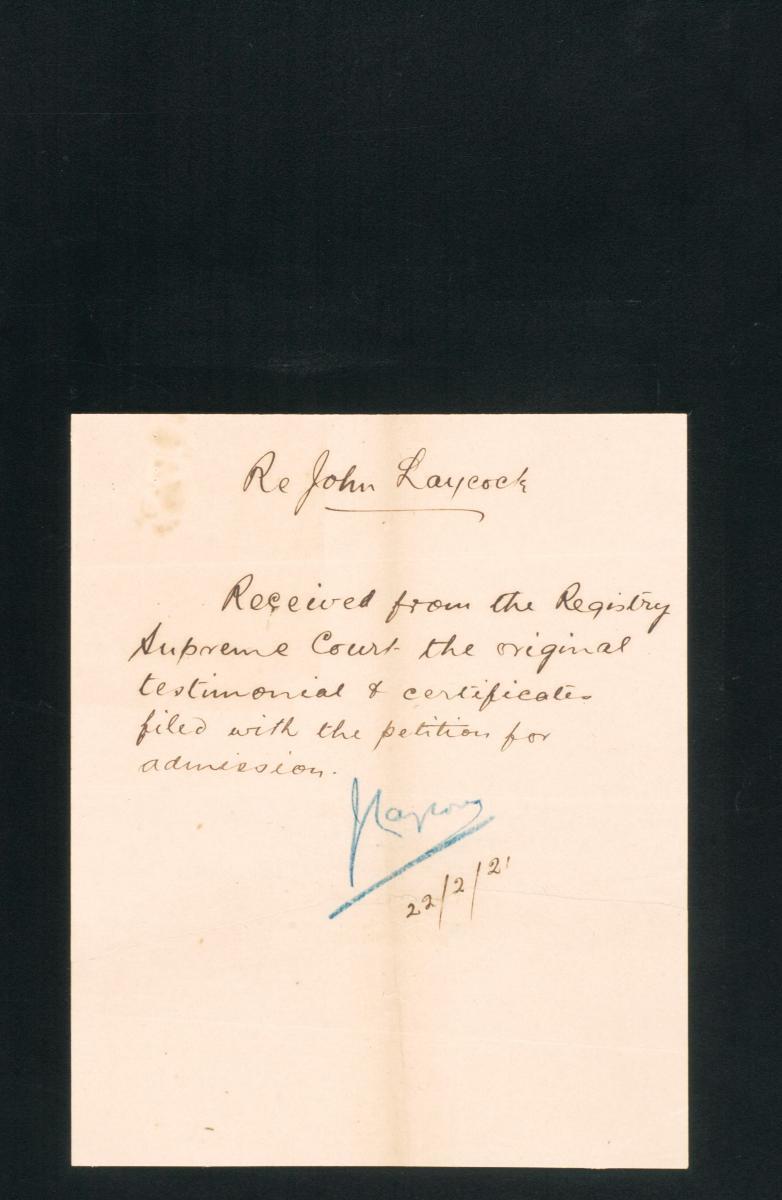 Re John Laycock
Received from the Registry
Supreme Court the original
testimonial & certificates
filed with the petition for
admission.
JLaycock
22/2/21